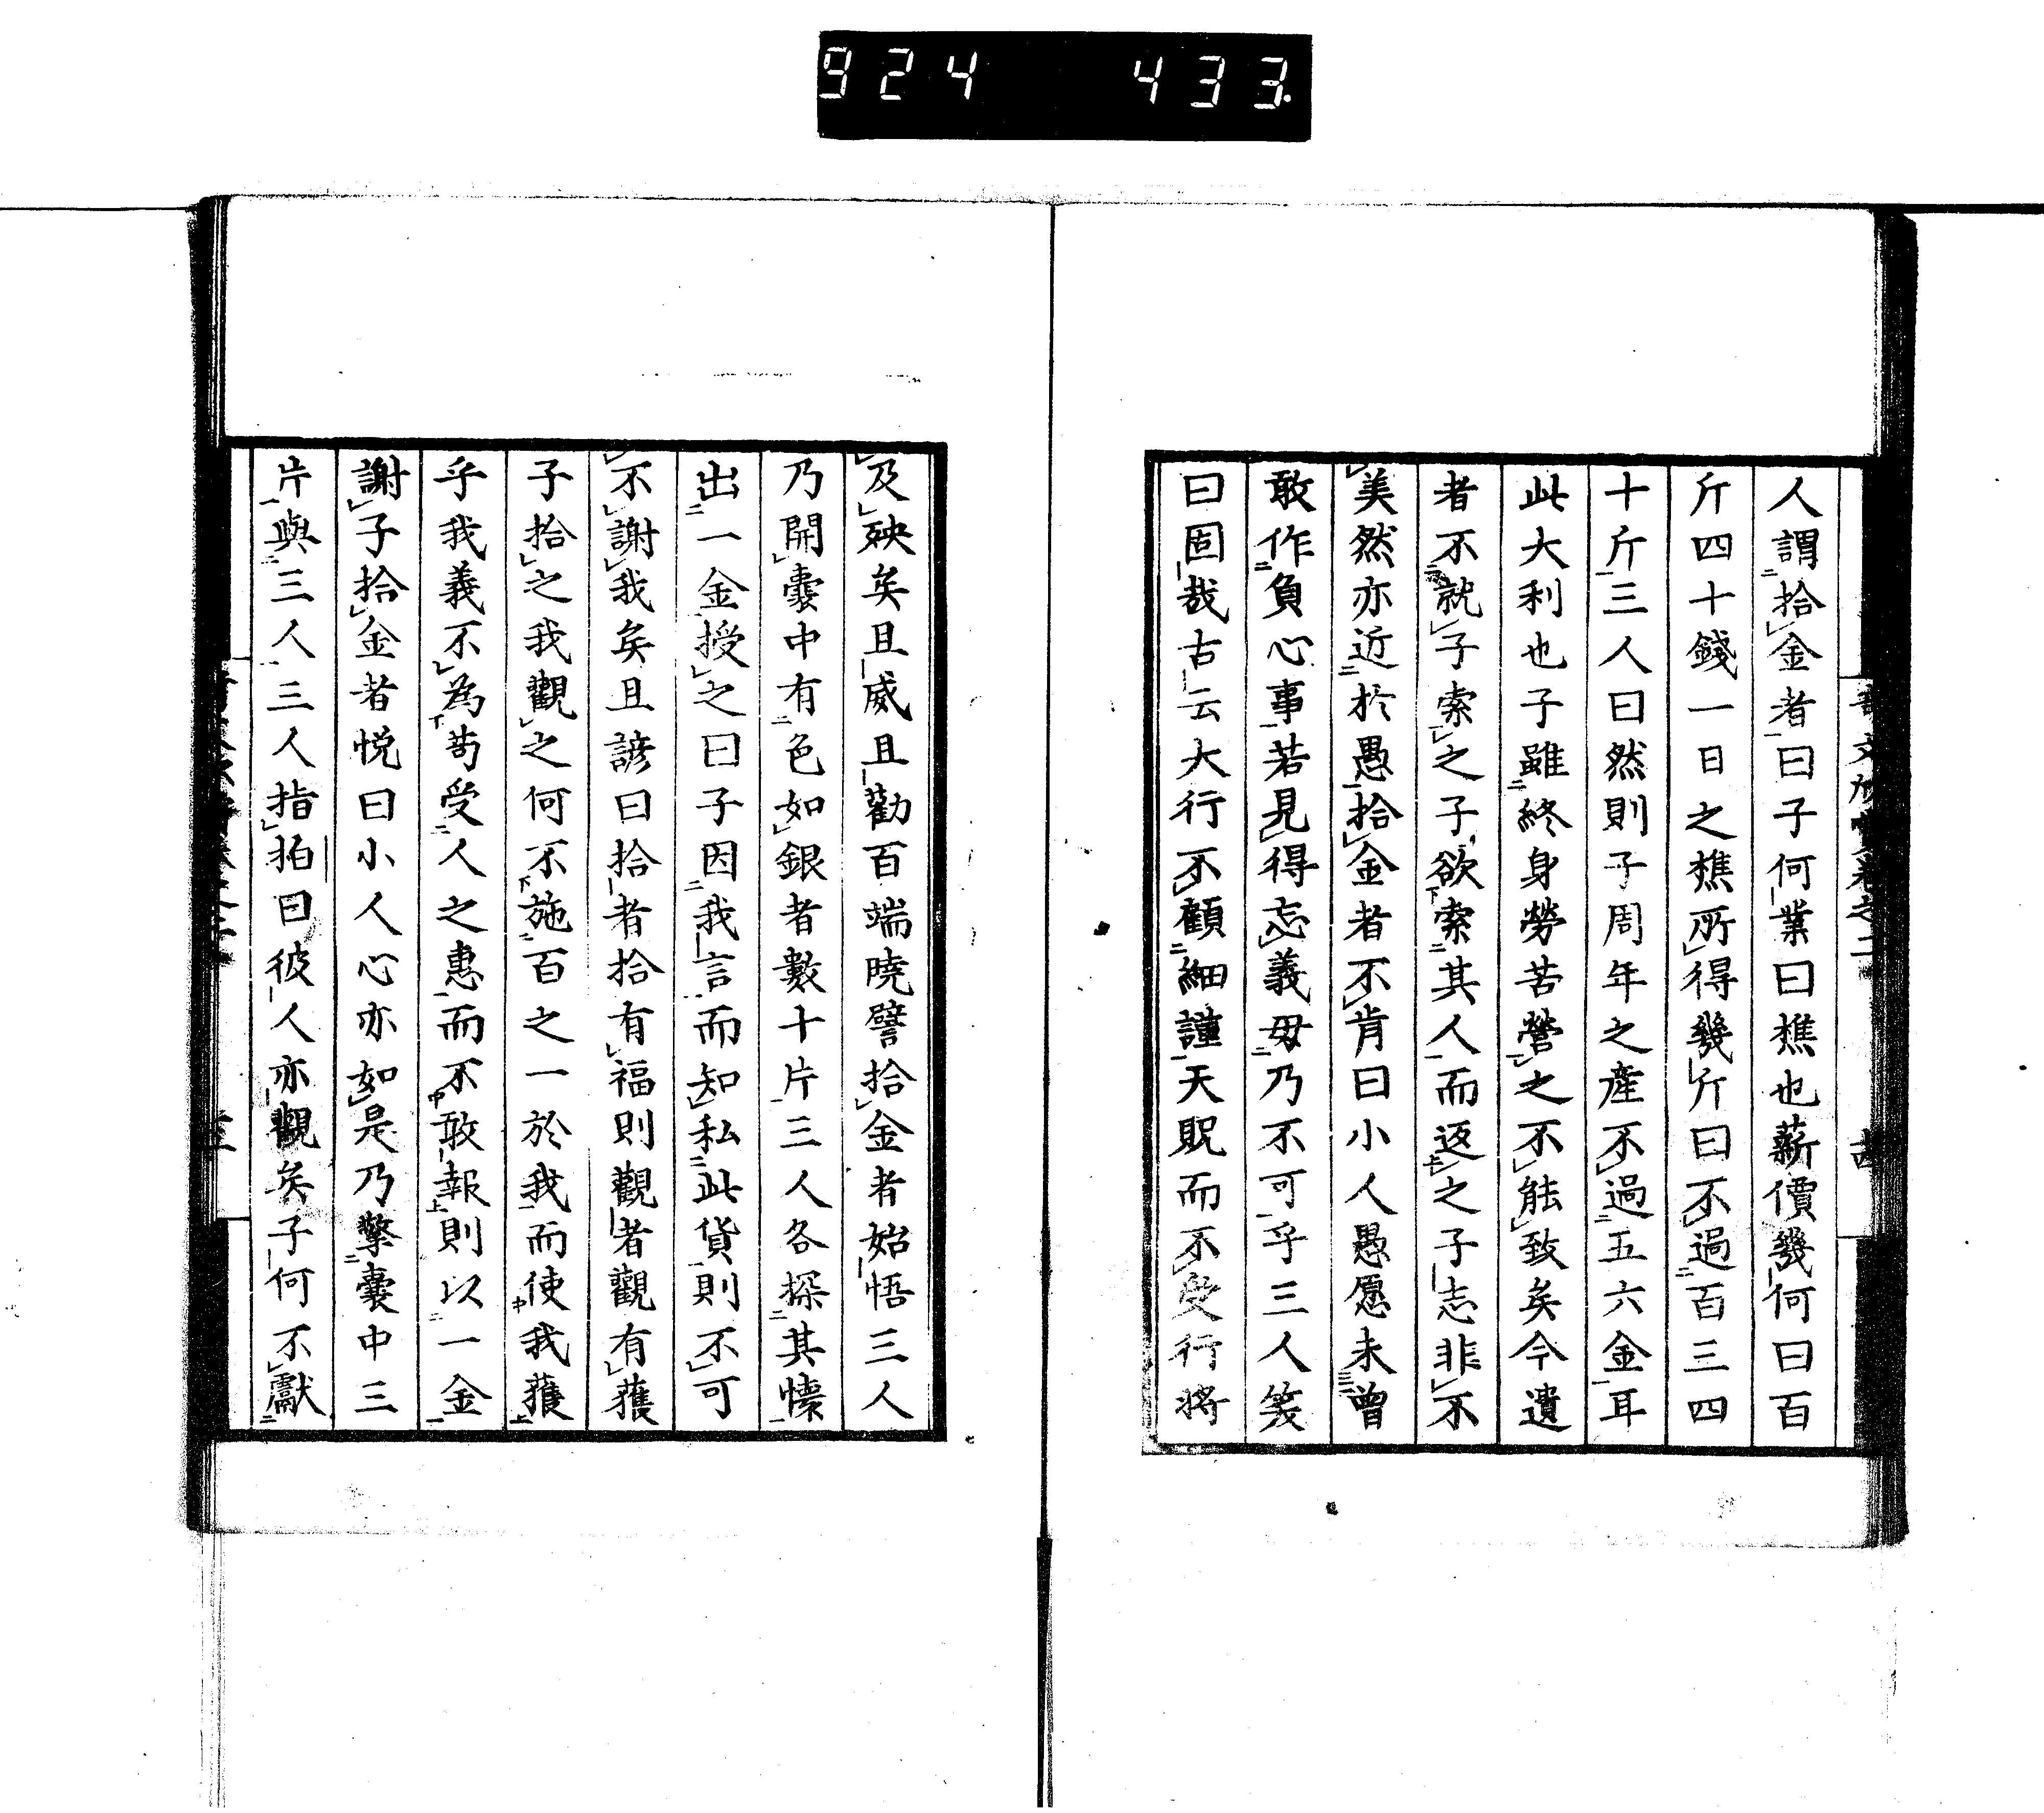 924 433
人謂拾金者曰子何業曰樵也薪價幾何曰百
斤四十錢一日之樵所得幾斤曰不過百三四
十斤三人曰然則子周年之產不過五六金耳
此大利也子雖終身勞苦營之不能致矣今遺
者不就子索之子欲索其人而返之子志非不
美然亦近於愚拾金者不肯曰小人愚愿未曾
敢作負心事若見得忘義毋乃不可乎三人笑
曰固哉古云大行不顧細謹天貺而不受行將
及殃矣且威且勸百端曉譬拾金者始悟三人
乃開囊中有色如銀者數十片三人各探其懷
出一金授之曰子因我言而知私此貨則不可
不謝我矣且諺曰拾者拾有福則觀者觀有獲
子拾之我觀之何不施百之一於我而使我獲
乎我義不為苟受人之惠而不敢報則以一金
謝子拾金者悅曰小人心亦如是乃擎囊中三
片與三人三人指拍曰彼人亦觀矣子何不獻